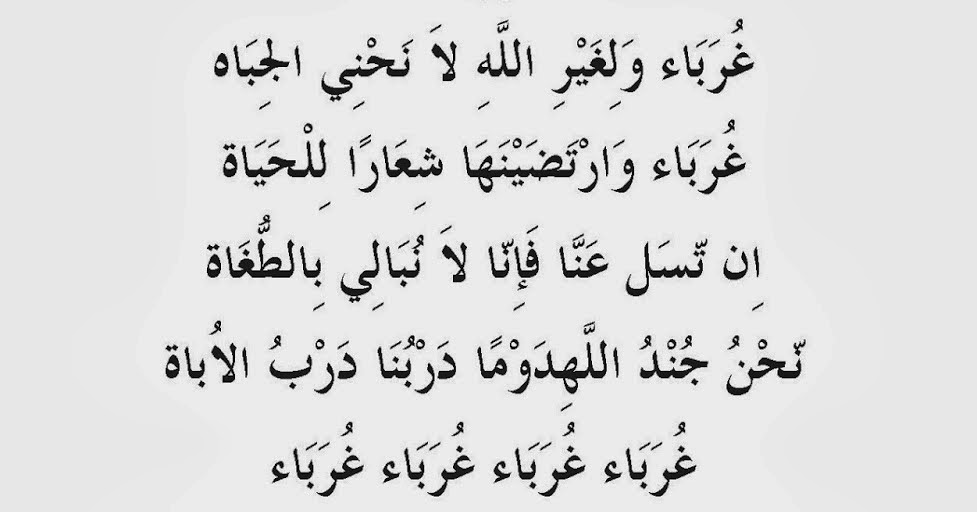 غُرَبَاء وَلِغَيْرِ اللَّهِ لاَ نَحْنِي الجِبَاه
غُرَبَاء وَارْتَضَيْنَهَا شِعَارًا لِلْحَيَاة
اِن تّسَل عَنَّا فَإِنّا لاَ نُبَالِي بِالطُّغَاة
نّحْنُ جُنْدُ اللَّهِدَوْمًا دَرْبُنَا دَرْبُ الاُباة
غُرَبَاء غُرَبَاء غُرَبَاء غُرَبَاء